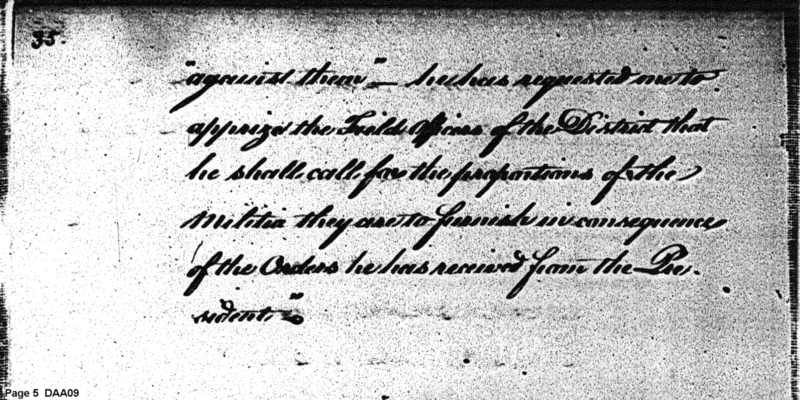 35.
"against them" — he has requested me to
apprize the Field Officers of the District that
he shall call for the proportions of the
Militia they are to furnish in consequence
of the Orders he has received from the Pre-
sident."
Page 5 DAA09